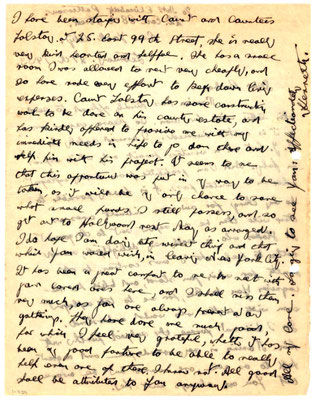 I have been staying with Count and Countess
Tolstoy, at 25. East 99th Street, he is really
very kind hearted and helpful. He has a small
room I was allowed to rent very cheaply, and
so have made every effort to keep down living
expenses. Count Tolstoy has some constructive
work to be done on his country estate, and
has kindly offered to provide me with my
immediate needs in life to go down there and
help him with his project. It seems to me
that this opportunity was put in my way to be
taken as it will be my only chance to save
what small funds I still possess, and so
get out to Hollywood next May as arranged.
I do hope I am doing the wisest thing and that
which you would wish, in leaving New York City.
It has been a great comfort to me to meet with
your loved ones here, and I shall miss them
very much, as you are always present at our
gatherings. They have done me much good,
for which I feel very grateful, whether it has
been my good fortune to be able to really
help even one of them, I know not. All good
shall be attributed to you anyway.
All my love. Longing to see you. Affectionately
Kenneth.